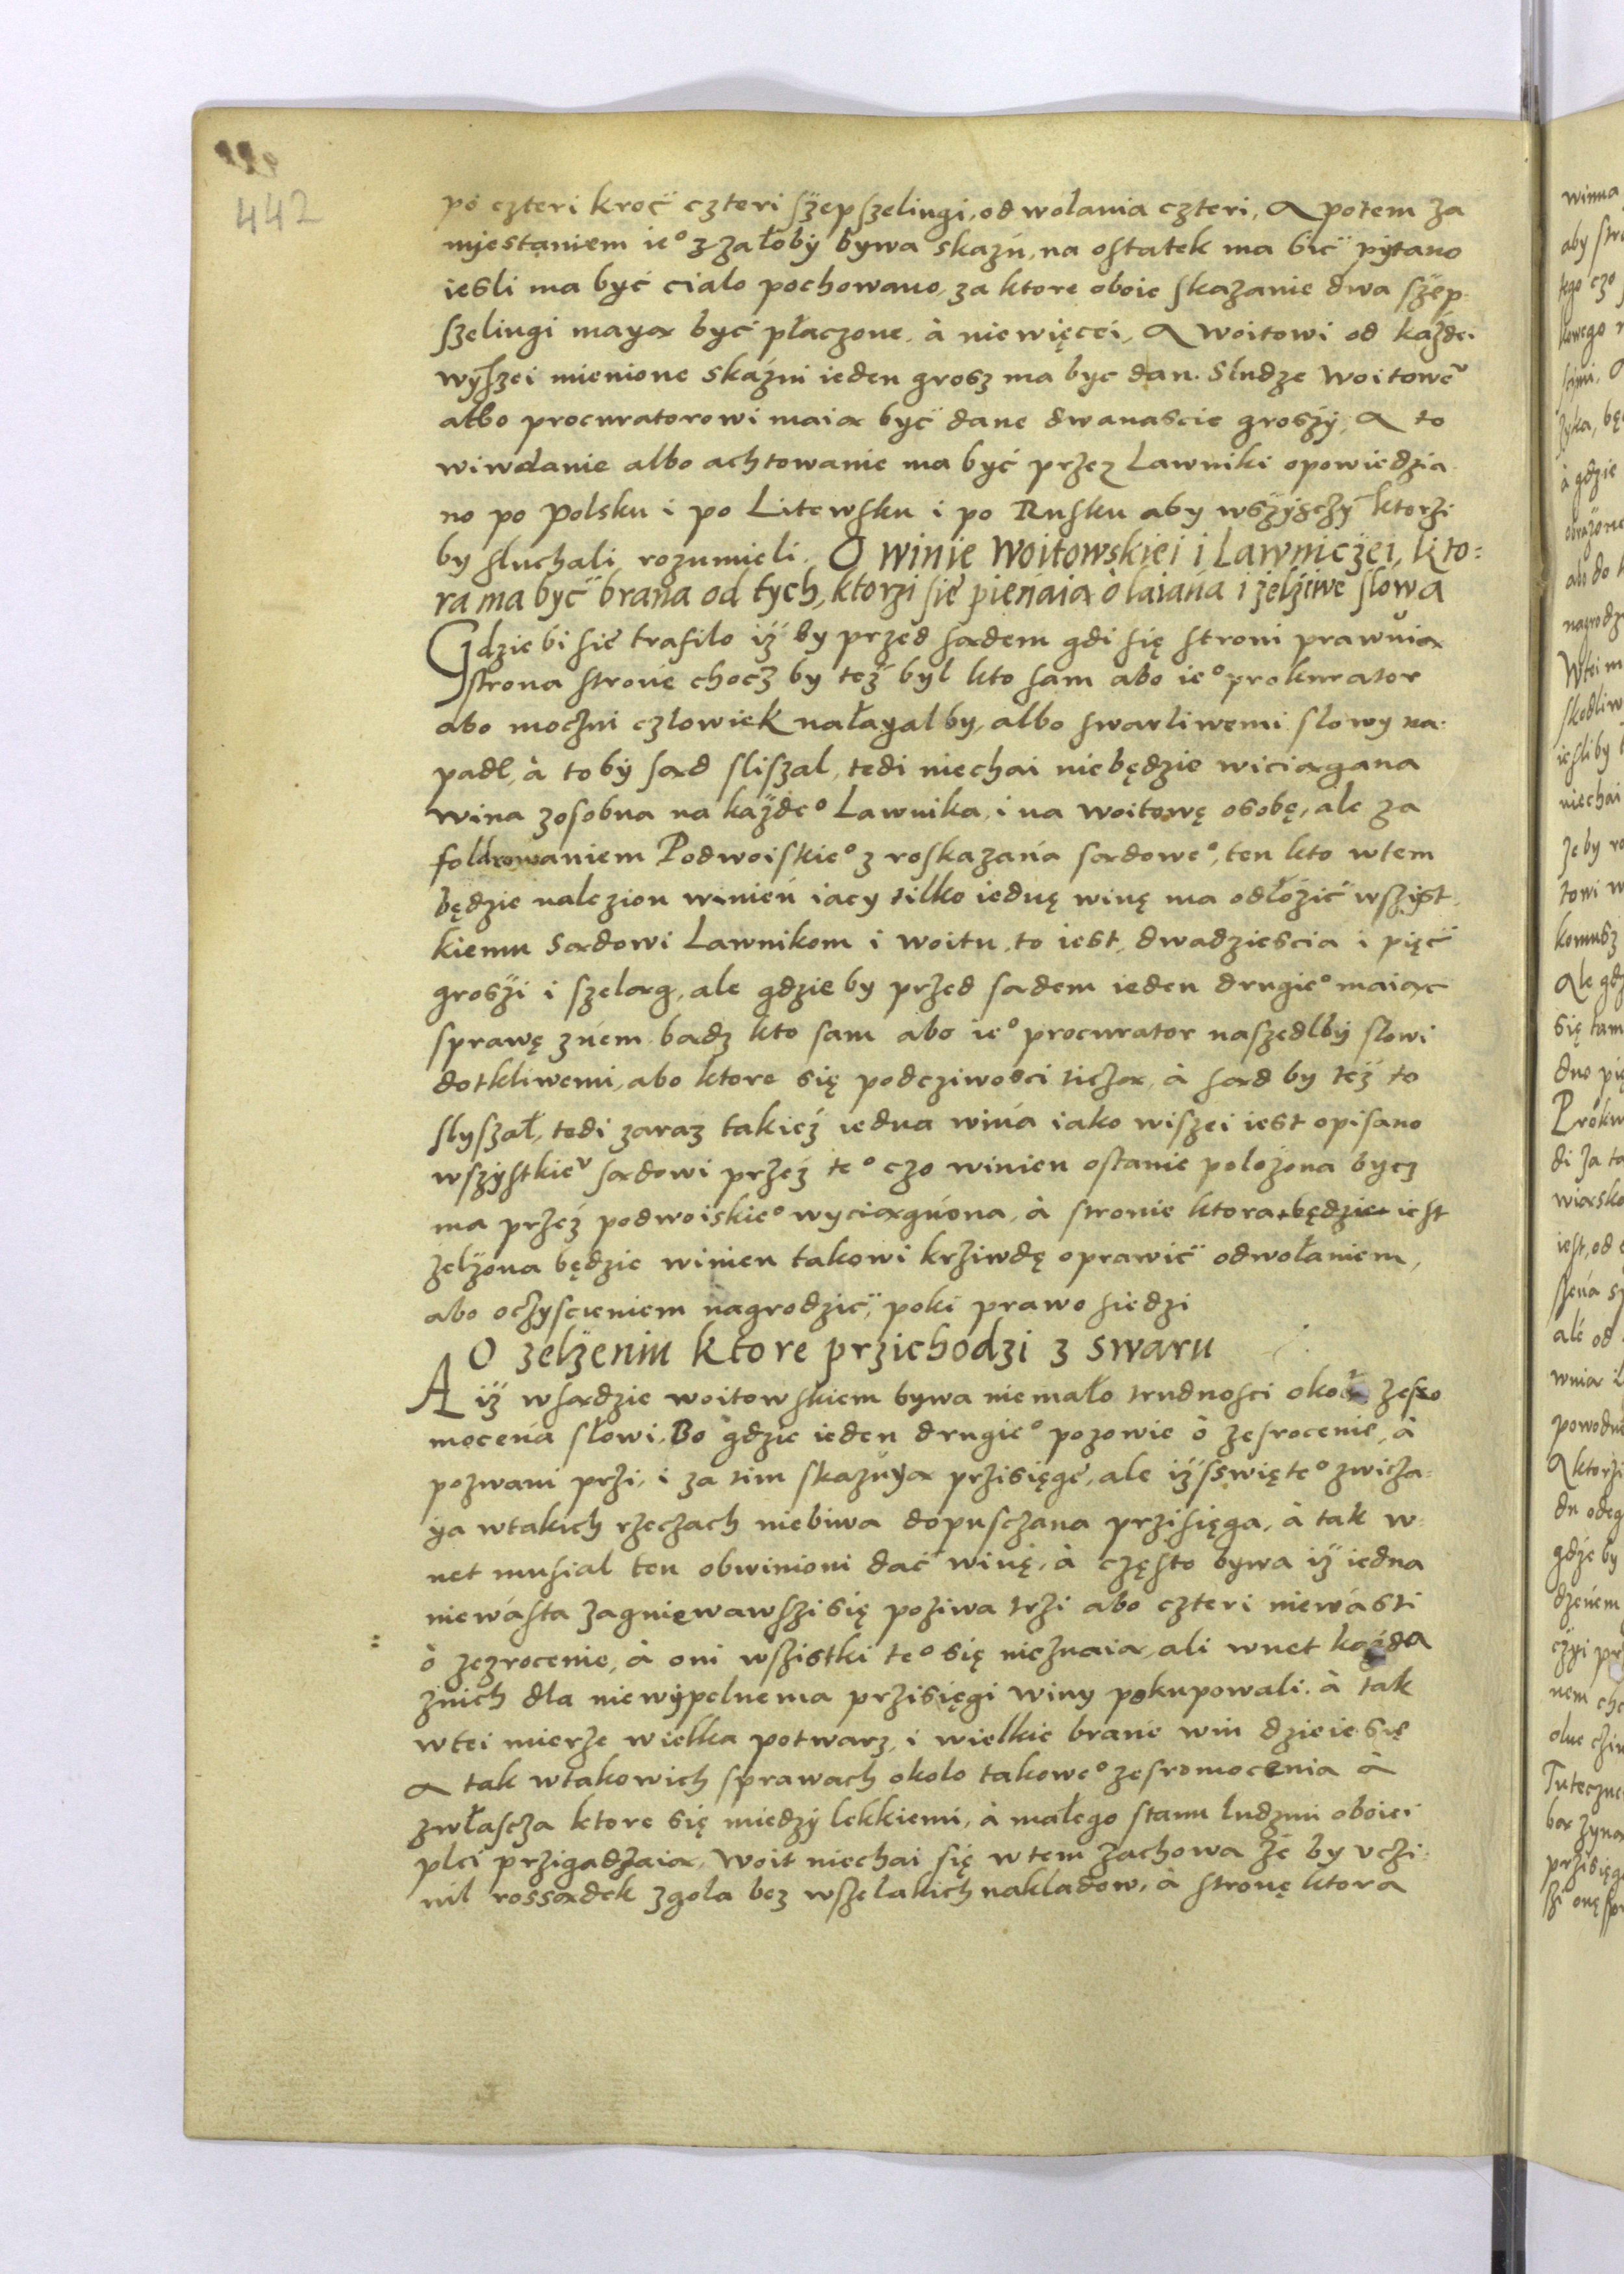 442
po czteri kroć czteri szepszelingi, od wolania czteri, A potem za
mjestaniem ie° z załoby bywa skazń, na ostatek ma bić pytano
iesli ma być cialo pochowano, za ktore oboie skazanie dwa szep-
szelingi mayą być płaczone, à niewięcei, A woitowi od każdei
wyszei mienione skaźni ieden grosz ma byc dan. Sludze woitowe͛
albo procuratorowi maią być dane dwanascie groszy, A to
wiwolanie albo achtowanie ma być przez Lawniki opowiedzia-
no po Polsku i po Litewsku i po Rusku aby wszysczy ktorzi
by sluchali rozumieli. O winie woitowskiei i Lawniczei, kto=
ra ma być brana od tych, ktorzi sie pieńaią ò laiańa i zelżiwe slowa
Gdzie bi sie trafilo iż by przed sądem gdi się stroni prawuią
strona stronie chocz by też byl kto sam abo ie° prokurator
abo moczni czlowiek nałayalby, albo swarliwemi slowy na-
padl, à to by sąd sliszal, tedi niechai niebędzie wiciągana
wina zosobna na każde° Lawnika, i na woitowę osobę, ale za
foldrowaniem Podwoiskie° z roskazańa sądowe°, ten kto wtem
będzie nalezion winień iacy tilko iednę winę ma odłożić wszyst-
kiemu Sądowi Lawnikom i woitu, to iest, dwadziescia i pięć
groszi i szeląg, ale gdzie by przed sądem ieden drugie° maiąc
sprawę zńem bądz kto sam abo ie° procurator naszedlby slowi
dotkliwemi, abo ktore się podcziwosci ticzą, à sąd by też to
slyszał, tedi zaraz takież iedna wińa iako wiszei iest opisano
wszystkie͛ sądowi przeź te° czo winien ostanie polożona bycz
ma przeź podwoiskie° wyciągńona, à stronie ktora będzie iest
zelżona będzie winien takowi krziwdę oprawić odwołaniem,
abo oczyscieniem nagrodzić, poki prawo siedzi
O zelżeniu ktore przichodzi z swaru
A iż wsądzie woitowskiem bywa niemało trudnosci około zesro
moceńa słowi. Bo gdzie ieden drugie° pozowie ò zesrocenie, à
pozwani przi, i za tim skazuyą przisięgę, ale iż sswięte° zwicza-
ya wtakich rzeczach niebiwa dopusczana przisięga, à tak w-
net musial ten obwinioni dać winę, à często bywa iż iedna
niewásta zagniewawszi się poziwa trzi abo czteri niewásti
ò zezrocenie, à oni wszistki te° się nieznaią, ali wnet każda
znich dla niewypelnema przisięgi winy pokupowali. à tak
wtei mierze wielka potwarz, i wielkie branie win dzieie się
A tak wtakowich sprawach okolo takowe° zesromocenia à
zwłascza ktore się miedzy lekkiemi, à małego stanu ludzmi oboiei
plci przigadzaią, woit niechai się wtem zachowa że by uczi-
nil rossądek zgola bez wszelakich nakladow, à stronę ktora